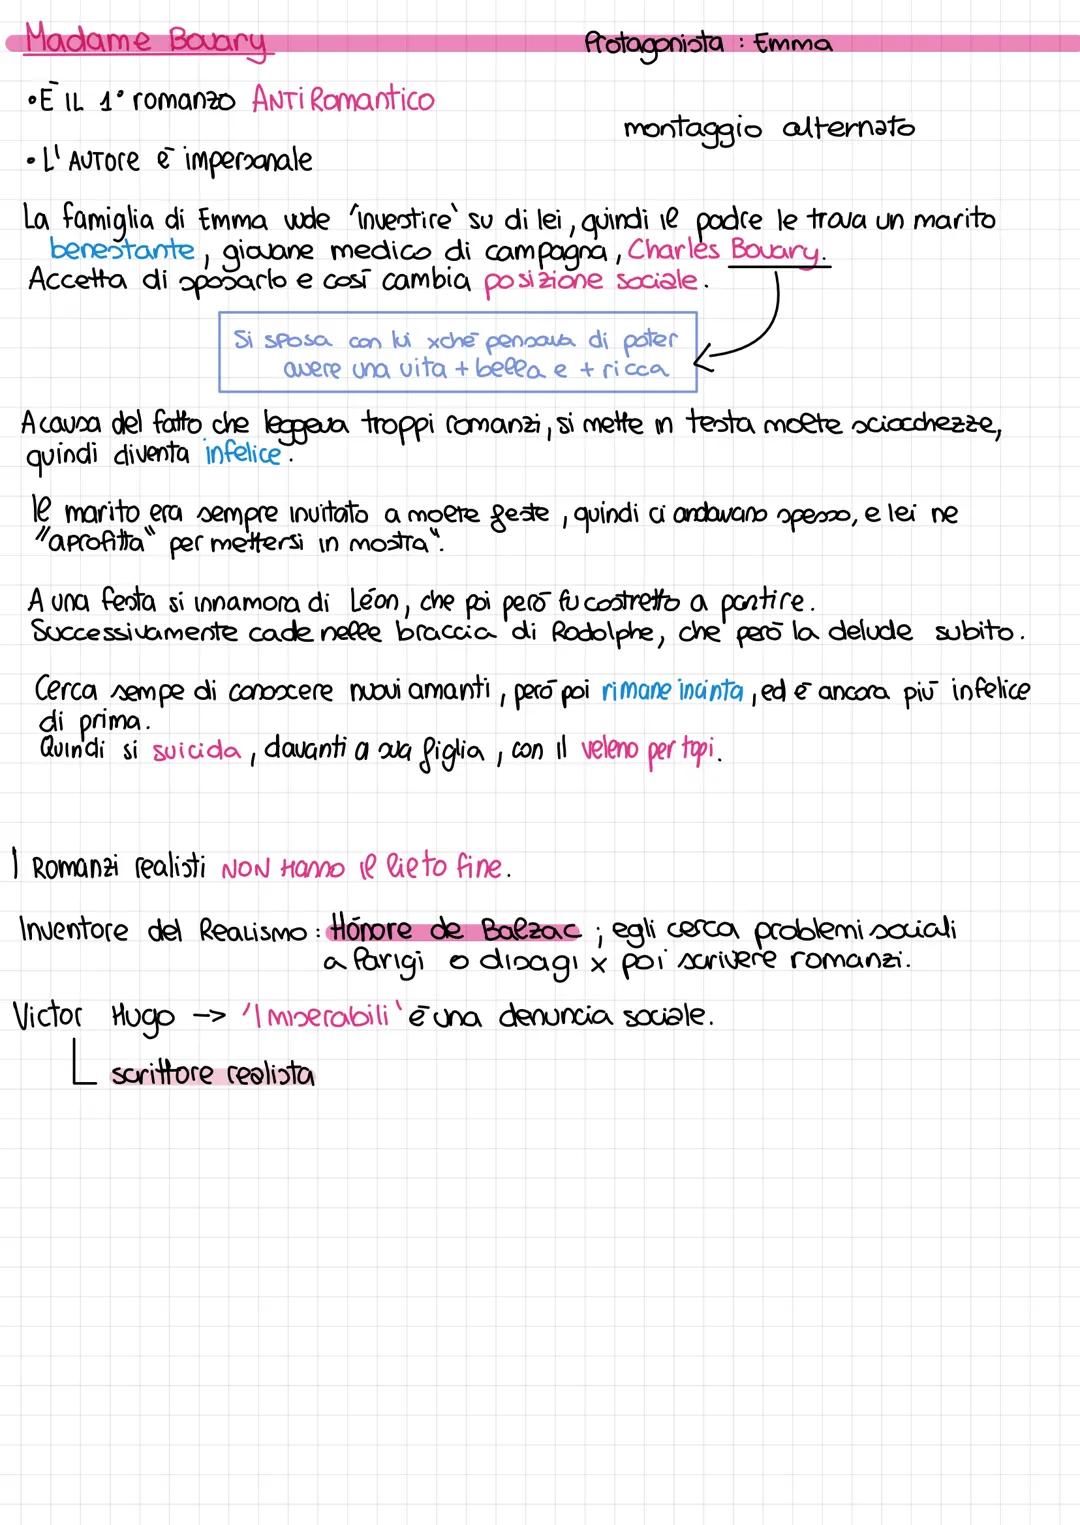 Madame Bovary
Protagonista : Emma
• È IL 1° romanzo ANTiRomantico
montaggio alternato
• L' AUTore è impersonale
La famiglia di Emma vuole 'investire' su di lei, quindi il padre le trova un marito
benestante, giovane medico di campagna, Charles Bovary.
Accetta di sposarlo e così cambia posizione sociale.
Si sposa con lui xchè pensava di poter
avere una vita + bella e + ricca
A causa del fatto che leggeva troppi romanzi, si mette in testa molte sciocchezze,
quindi diventa infelice.
Il marito era sempre invitato a molte feste, quindi ci andavano spesso, e lei ne
"aprofitta" per mettersi in mostra".
A una festa si innamora di Léon, che poi però fu costretto a partire.
Successivamente cade nelle braccia di Rodolphe, che però la delude subito.
Cerca sempe di conoscere nuovi amanti, però poi rimane incinta, ed è ancora più infelice
di prima.
Quindi si suicida, davanti a sua figlia, con il veleno per topi.
I Romanzi realisti NON Hanno il lieto fine.
Inventore del Realismo : Hónore de Balzac ; egli cerca problemi sociali
a Parigi o disagi x poi scrivere romanzi.
Victor Hugo -> 'I Miserabili' è una denuncia sociale.
scrittore realista